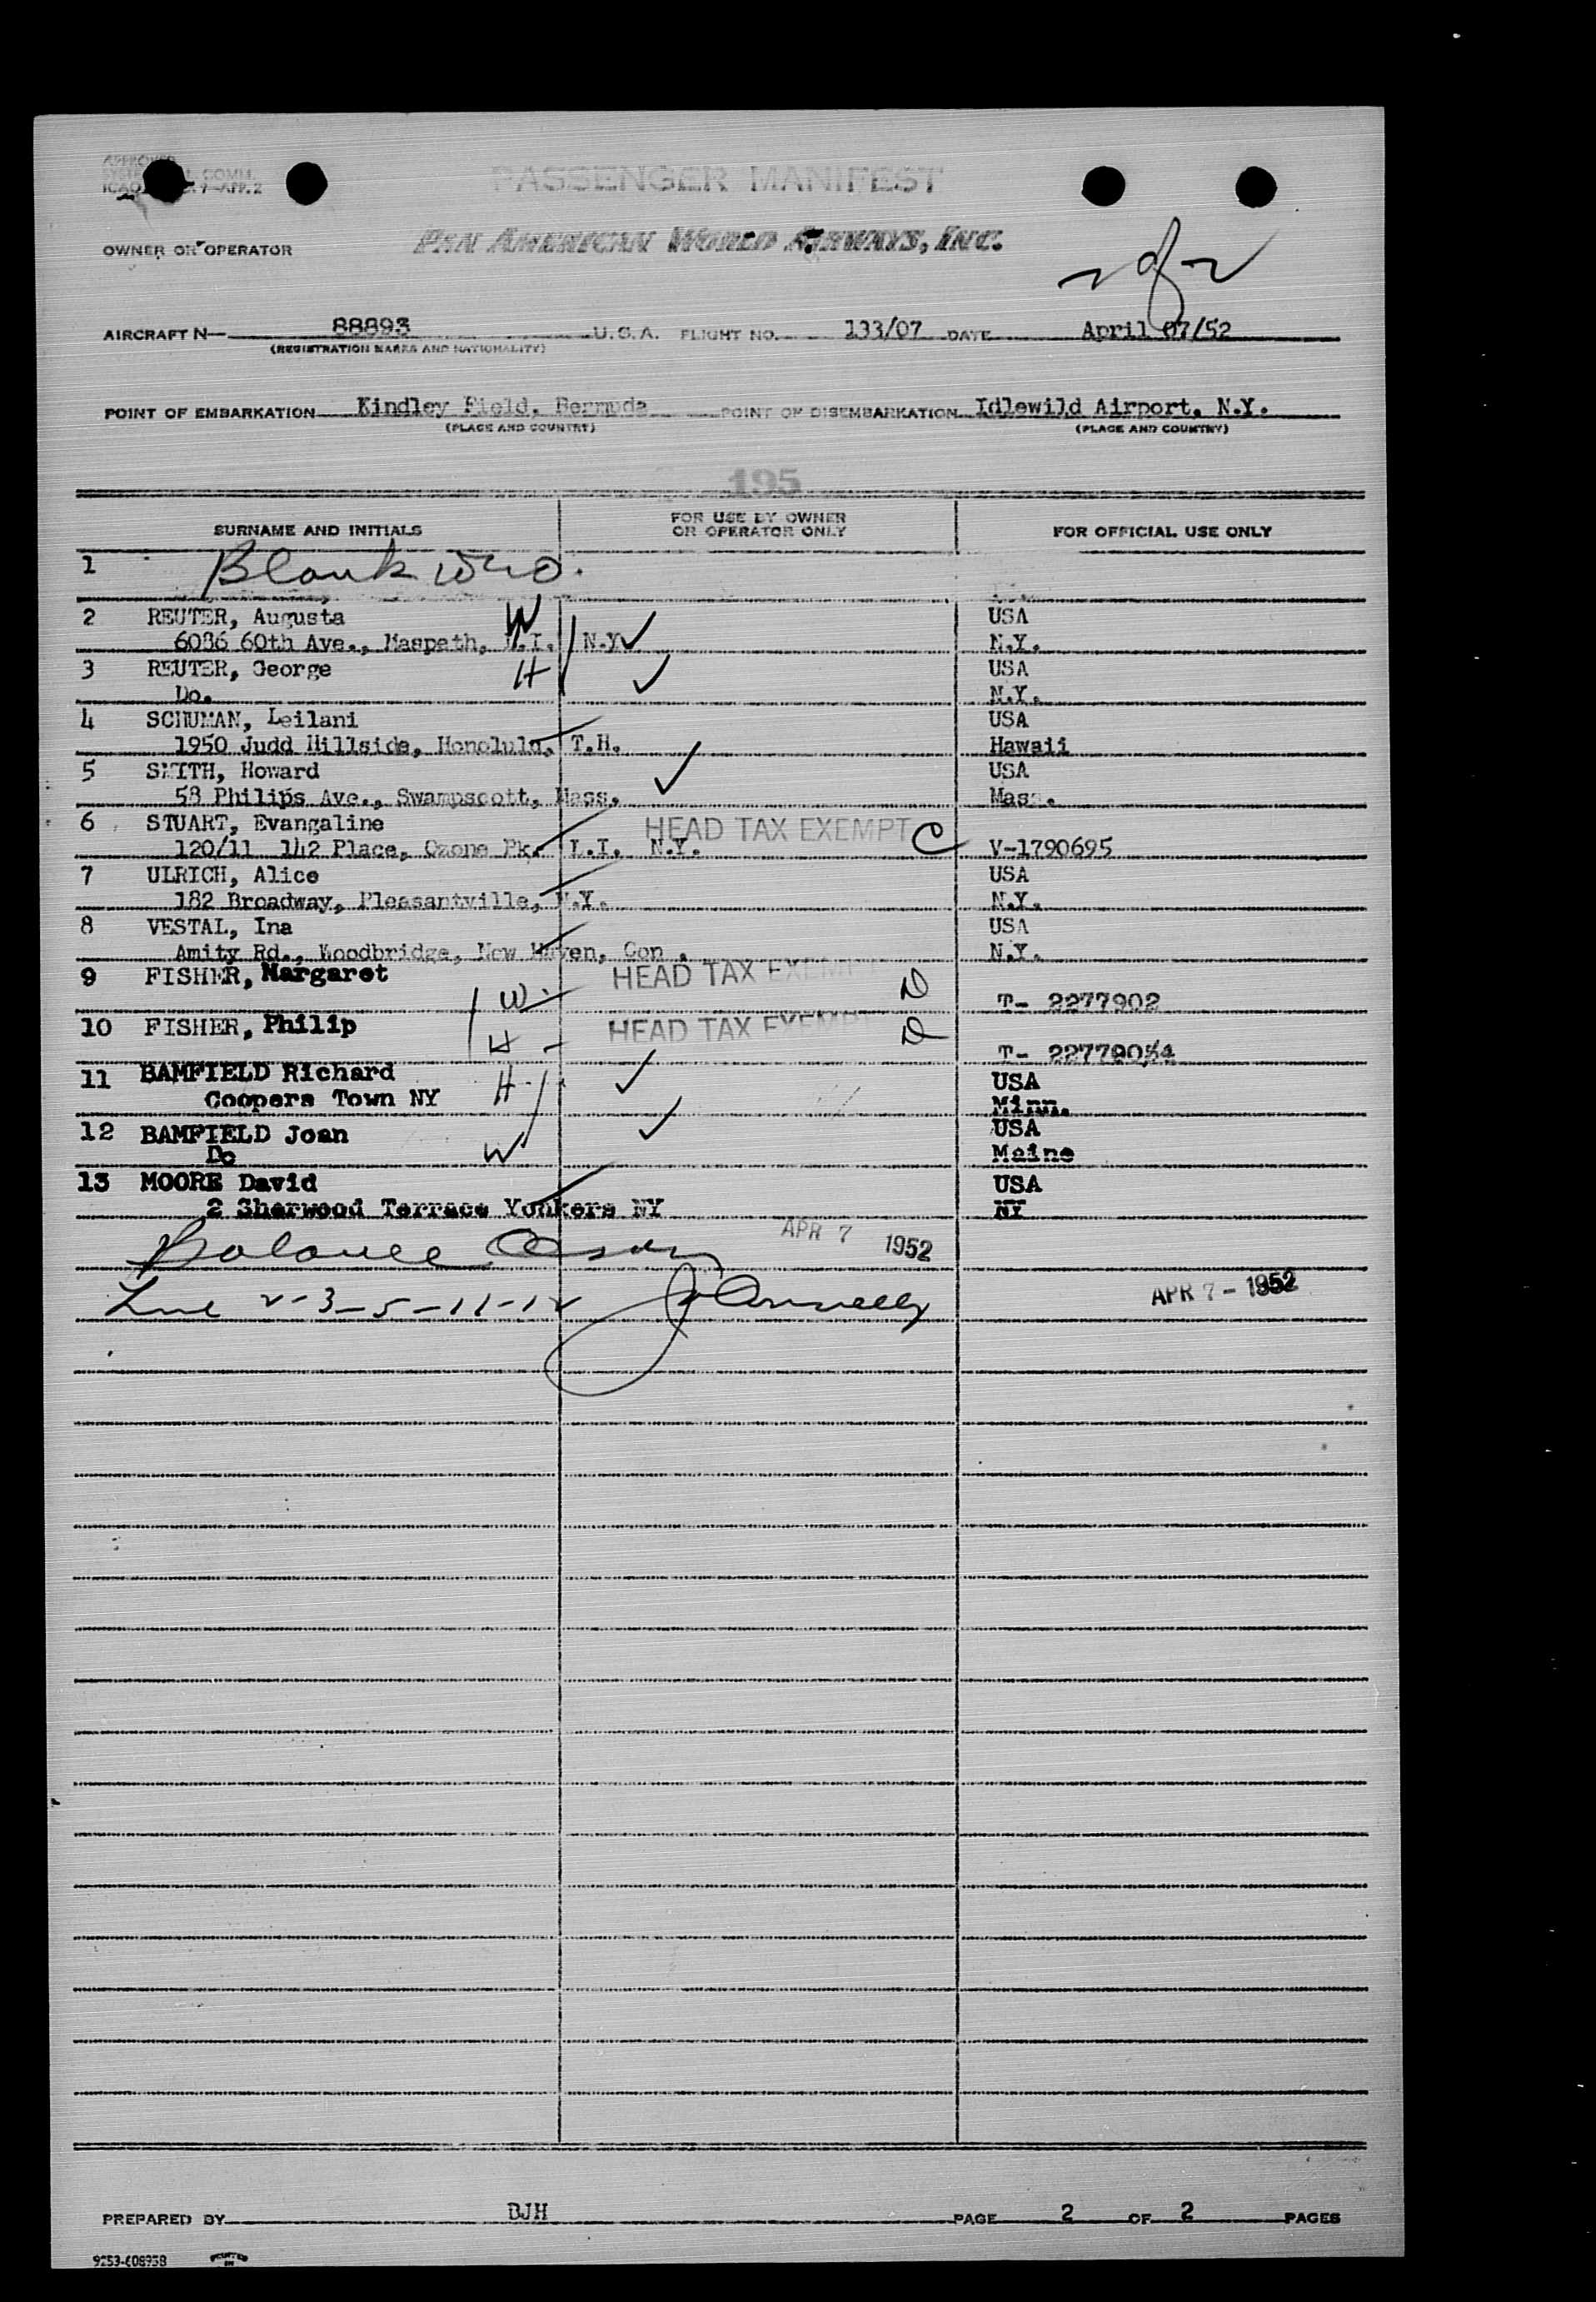 APPROVED
COMM.
ICAO 9-APP. 2
PASSENGER MANIFEST
OWNER OR OPERATOR PAN AMERICAN WORLD AIRWAYS, INC.
2 of 2
AIRCRAFT N— 88893 U.S.A. FLIGHT NO. 133/07 DATE April 07/52
(REGISTRATION MARKS AND NATIONALITY)
POINT OF EMBARKATION Kindley Field, Bermuda POINT OF DISEMBARKATION Idlewild Airport, N.Y.
(PLACE AND COUNTRY) (PLACE AND COUNTRY)
195
SURNAME AND INITIALS FOR USE BY OWNER OR OPERATOR ONLY FOR OFFICIAL USE ONLY
1 Blank
2 REUTER, Augusta W USA
6086 60th Ave., Maspeth, L.I. N.Y. N.Y.
3 REUTER, George H USA
Do. N.Y.
4 SCHUMAN, Leilani USA
1950 Judd Hillside, Honolulu, T.H. Hawaii
5 SMITH, Howard USA
58 Philips Ave., Swampscott, Mass. Mass.
6 STUART, Evangaline HEAD TAX EXEMPT C
120/11 142 Place, Ozone Pk. L.I. N.Y. V-1790695
7 ULRICH, Alice USA
182 Broadway, Pleasantville, N.Y. N.Y.
8 VESTAL, Ina USA
Amity Rd., Woodbridge, New Haven, Con . N.Y.
9 FISHER, Margaret W HEAD TAX EXEMPT D
T- 2277902
10 FISHER, Philip H HEAD TAX EXEMPT D
T- 22779054
11 BAMFIELD Richard H USA
Coopers Town NY Minn.
12 BAMFIELD Joan USA
Do W Maine
13 MOORE David USA
2 Sherwood Terrace Yonkers NY NY
Balance APR 7 1952
Line 2-3-5-11-12 APR 7 - 1952
PREPARED BY DJH PAGE 2 OF 2 PAGES
PRINTED IN